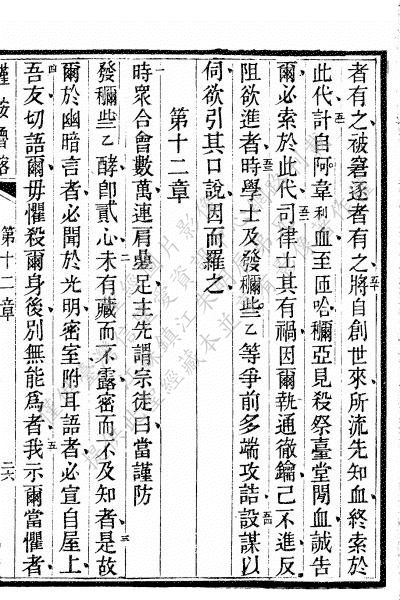 者有之被窘逐者有之將自創世來所流先知血終索於
此代計自阿韋利血至匝哈穪亞見殺祭臺堂閒血誠告
爾必索於此代司律士其有禍因爾執通徹鑰己不進反
阻欲進者時學士及發穪些乙等爭前多端攻詰設謀以
伺欲引其口說因而羅之
第十二章
時眾合會數萬連肩疊足主先謂宗徒曰當謹防
發穪些乙酵卽貳心未有藏而不露密而不及知者是故
爾於幽暗言者必聞於光明密室附耳語者必宣自屋上
吾友切語爾毋懼殺爾身後別無能為者我示爾當懼者
第十二章
二六